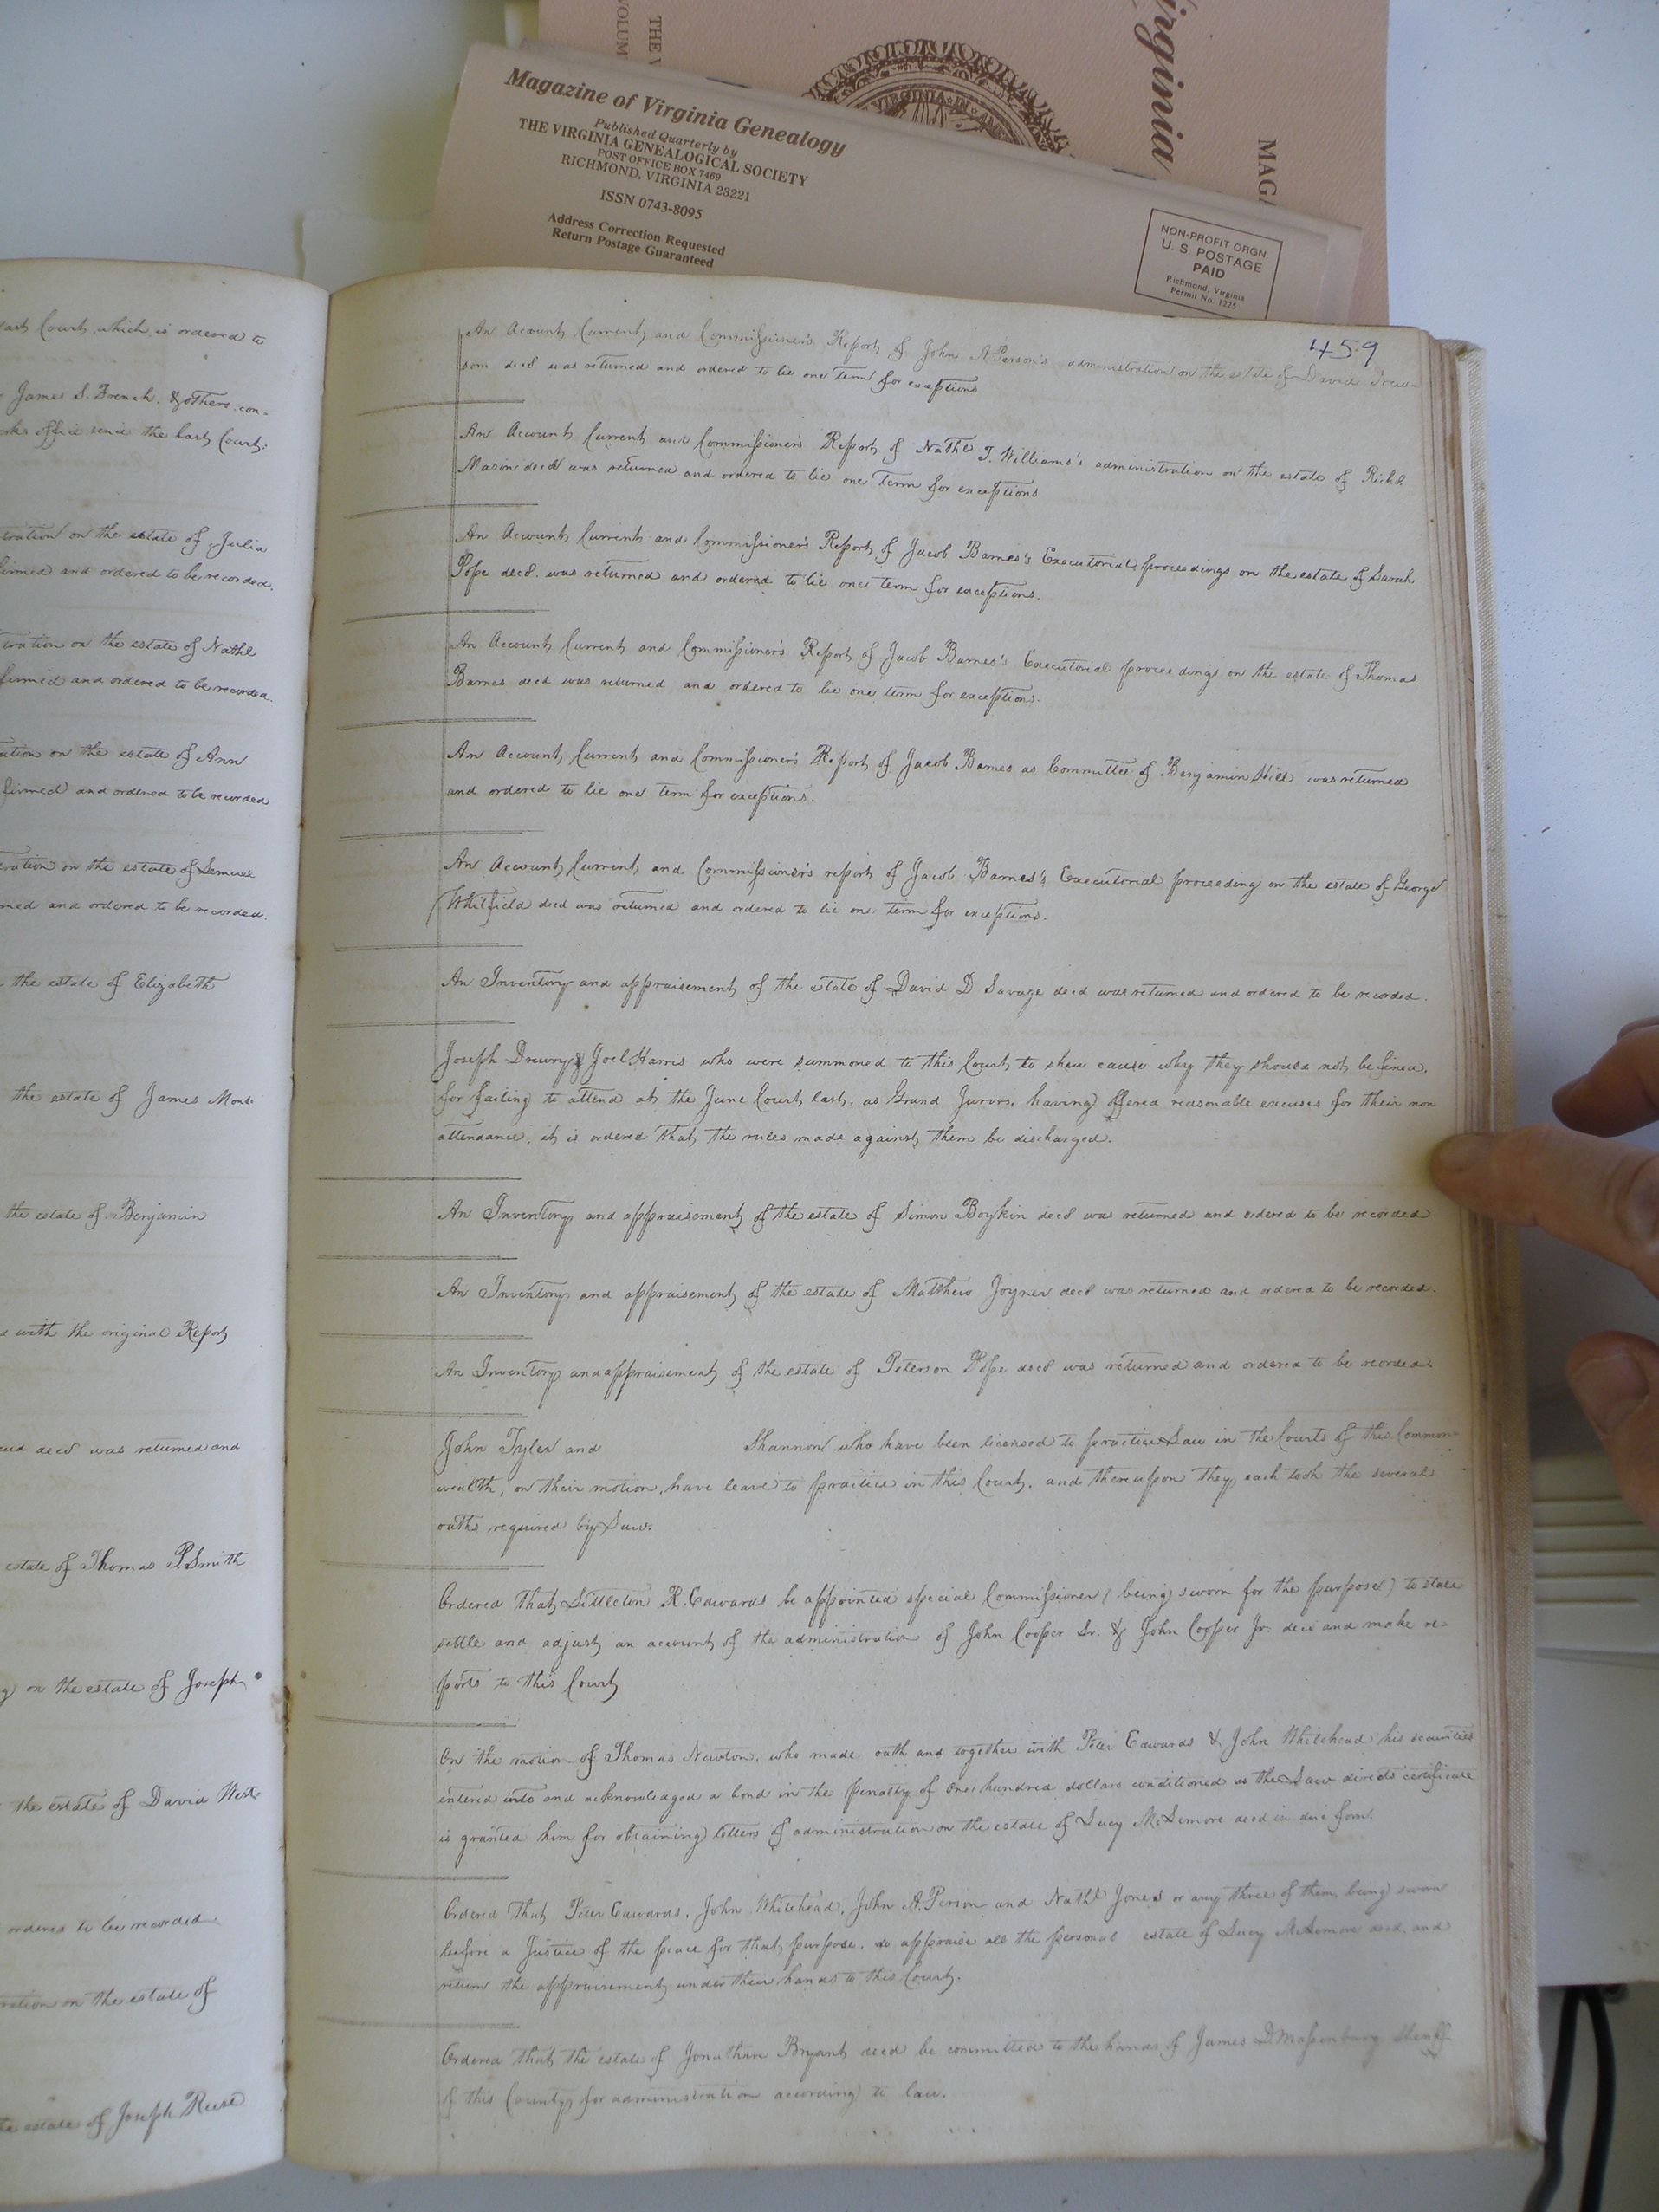 THE V
VOLUM
Virginia
MAGA
VIRGINIA IN
Magazine of Virginia Genealogy
Published Quarterly by
THE VIRGINIA GENEALOGICAL SOCIETY
POST OFFICE BOX 7469
RICHMOND, VIRGINIA 23221
ISSN 0743-8095
Address Correction Requested
Return Postage Guaranteed
NON-PROFIT ORGN.
U. S. POSTAGE
PAID
Richmond, Virginia
Permit No. 1225
last Court, which is ordered to
James S. French, & others con-
office since the last Court.
tration on the estate of Julia
firmed and ordered to be recorded.
tration on the estate of Nathl
firmed and ordered to be recorded.
ation on the estate of Ann
firmed and ordered to be recorded
tration on the estate of Lemuel
med and ordered to be recorded.
the estate of Elizabeth
the estate of James
the estate of Benjamin
with the original Report
decd was returned and
estate of Thomas P. Smith
on the estate of Joseph
the estate of David West
ordered to be recorded.
ration on the estate of
the estate of Joseph Reese
459
An Account Current and Commissioner's Report of John A Person's administration on the estate of David New-
som decd was returned and ordered to lie one term for exceptions
An Account Current and Commissioner's Report of Nathl T. Williams's administration on the estate of Richd.
Mason decd was returned and ordered to lie one term for exceptions
An Account Current and Commissioner's Report of Jacob Barnes's Executorial proceedings on the estate of Sarah
Pope decd. was returned and ordered to lie one term for exceptions.
An Account Current and Commissioner's Report of Jacob Barnes's Executorial proceedings on the estate of Thomas
Barnes decd was returned and ordered to lie one term for exceptions.
An Account Current and Commissioner's Report of Jacob Barnes as Committee of Benjamin Hill was returned
and ordered to lie one term for exceptions.
An Account Current and Commissioner's report of Jacob Barnes's Executorial proceeding on the estate of George
Whitfield decd was returned and ordered to lie one term for exceptions.
An Inventory and appraisement of the estate of David D Savage decd was returned and ordered to be recorded.
Joseph Drewry & Joel Harris who were summoned to this Court to shew cause why they should not be fined,
for failing to attend at the June Court last, as Grand Jurors, having offered reasonable excuses for their non
attendance, it is ordered that the rules made against them be discharged.
An Inventory and appraisement of the estate of Simon Boykin decd was returned and ordered to be recorded
An Inventory and appraisement of the estate of Matthew Joyner decd was returned and ordered to be recorded.
An Inventory and appraisement of the estate of Peterson Pope decd was returned and ordered to be recorded.
John Tyler and Shannon who have been licensed to practice Law in the Courts of this Common-
wealth, on their motion, have leave to practice in this Court, and thereupon they each took the several
oaths required by Law.
Ordered that Littleton R. Edwards be appointed special Commissioner (being sworn for the purpose) to state
settle and adjust an account of the administration of John Cooper Sr. & John Cooper Jr. decd and make re-
ports to this Court
On the motion of Thomas Newton, who made oath and together with Peter Edwards & John Whitehead his securities
entered into and acknowledged a bond in the penalty of one hundred dollars conditioned as the Law directs certificate
is granted him for obtaining letters of administration on the estate of Lucy McLemore decd in due form.
Ordered that Peter Edwards, John Whitehead, John A. Person and Nathl Jones or any three of them, being sworn
before a Justice of the peace for that purpose, do appraise all the personal estate of Lucy McLemore decd, and
return the appraisement under their hands to this Court.
Ordered that the estate of Jonathan Bryant decd be committed to the hands of James D Massenburg Sheriff
of this County for administration according to law.